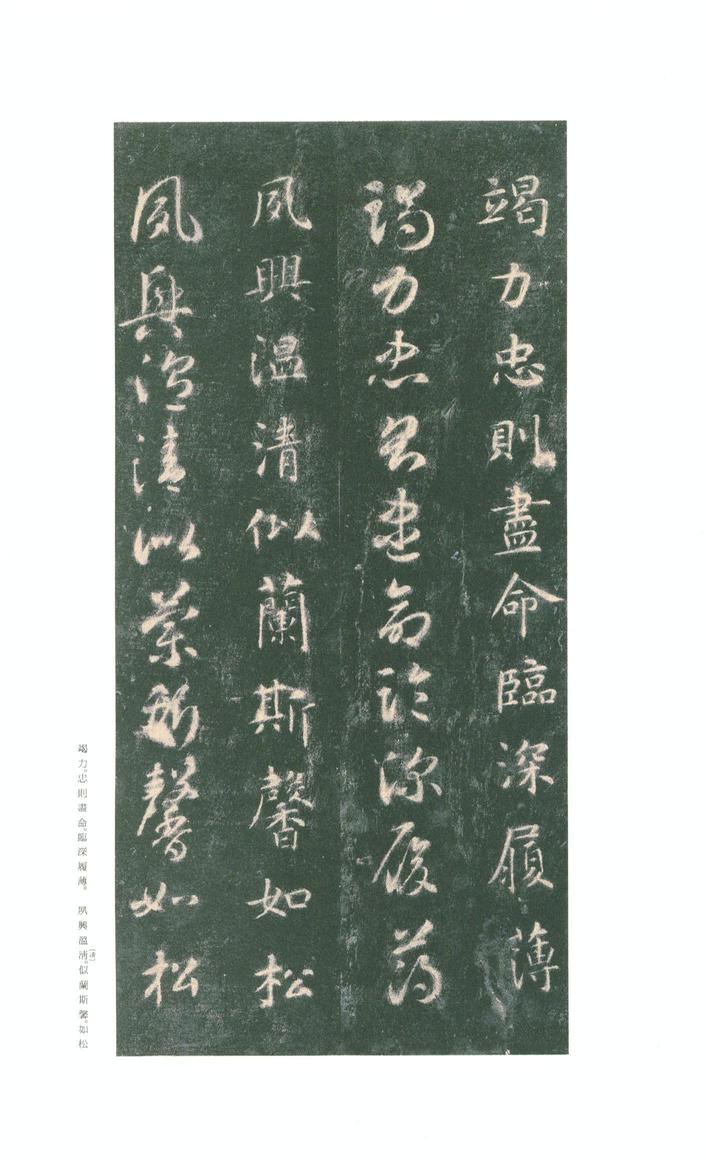 竭力忠則盡命臨深履薄
竭力忠則盡命臨深履薄
夙興温清似蘭斯馨如松
夙興温清似蘭斯馨如松
竭力。忠則盡命。臨深履薄。　夙興溫凊。似蘭斯馨。如松
(清)